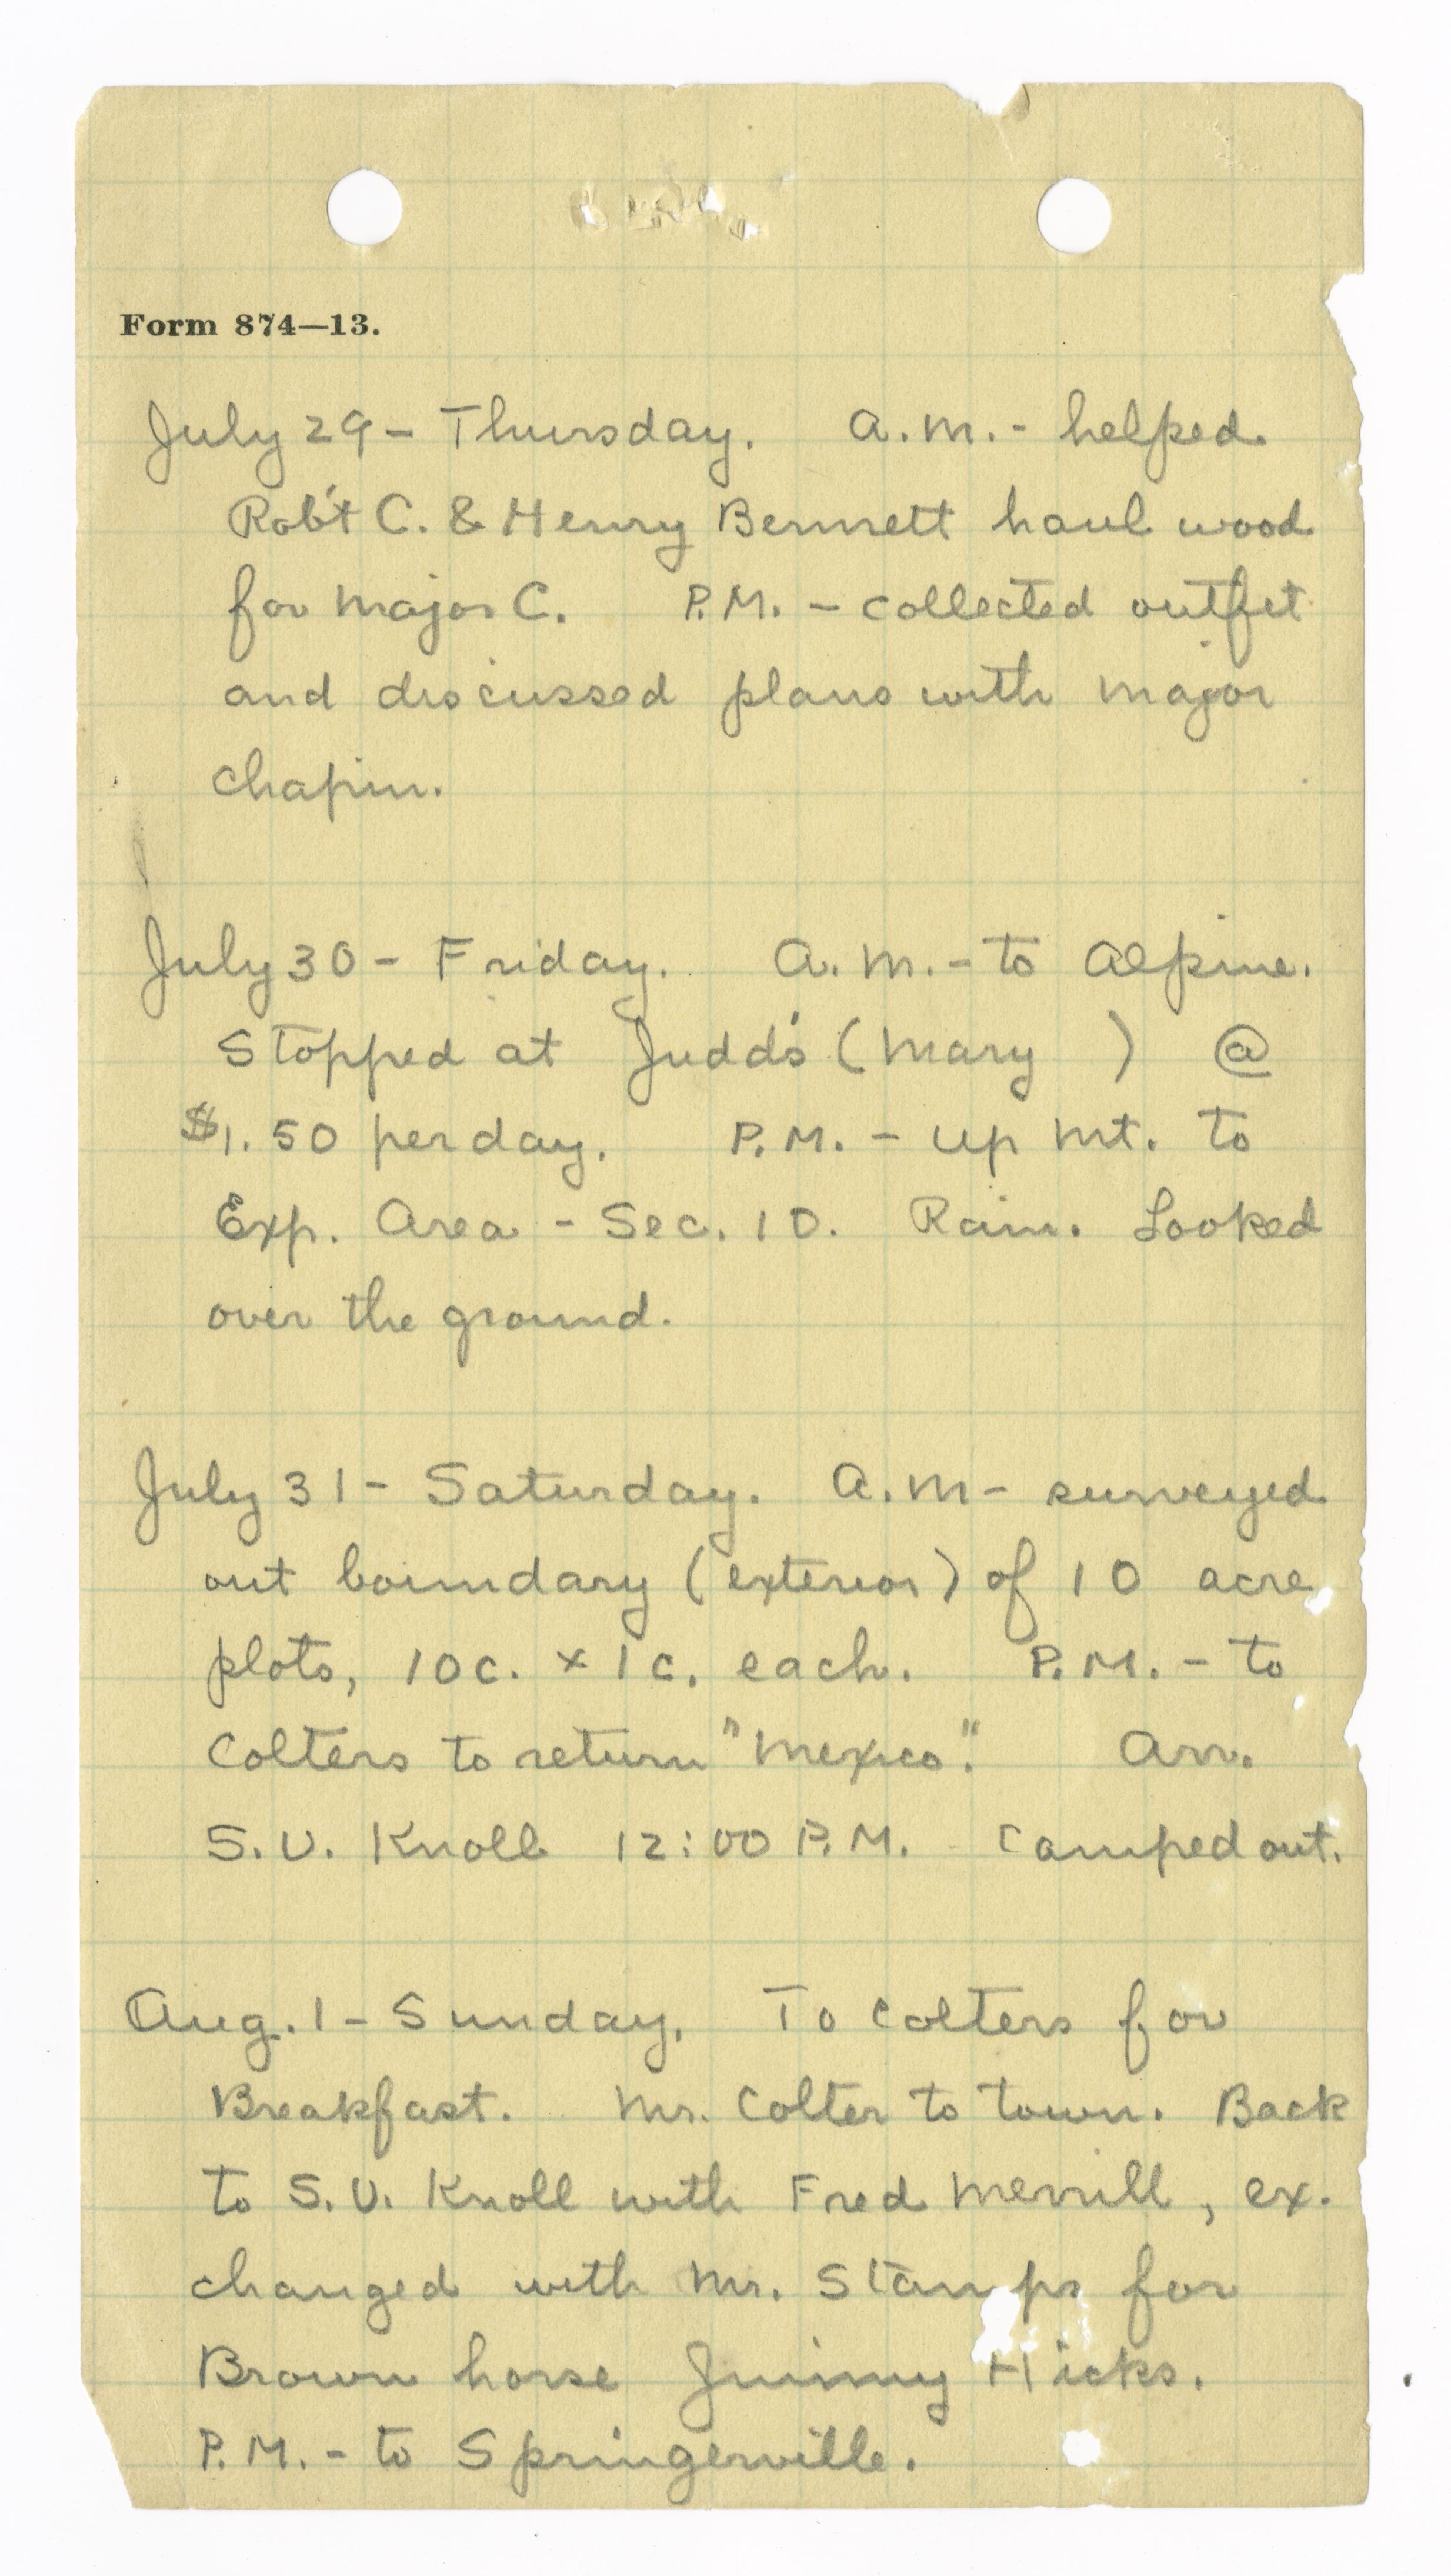 Form 874—13.
July 29 - Thursday. A.M. - helped
Rob't C. & Henry Bennett haul wood
for Major C. P.M. - collected outfit
and discussed plans with Major
Chapin.
July 30 - Friday. A.M. - to Alpine.
Stopped at Judd's (Mary ) @
$1.50 per day. P.M. - up Mt. to
Exp. Area - Sec. 10. Rain. Looked
over the ground.
July 31 - Saturday. A.M - surveyed
out boundary (exterior) of 10 acre
plots, 10c. x 1c. each. P.M. - to
Colters to return "Mexico". Arr.
S.U. Knoll 12:00 P.M. Camped out.
Aug. 1 - Sunday. To Colters for
Breakfast. Mr. Colter to town. Back
to S.U. Knoll with Fred Merrill, ex-
changed with Mr. Stamps for
Brown horse Jimmy Hicks.
P.M. - to Springerville.